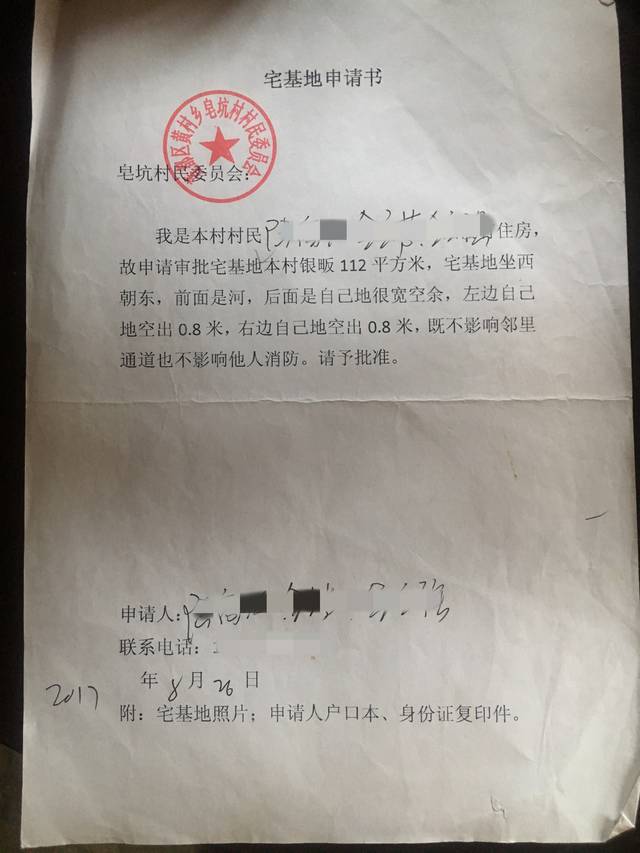 宅基地申请书
区黄村乡皂坑村村民委员会
皂坑村民委员会：
我是本村村民 住房，
故申请审批宅基地本村银畈 112 平方米，宅基地坐西
朝东，前面是河，后面是自己地很宽空余，左边自己
地空出 0.8 米，右边自己地空出 0.8 米，既不影响邻里
通道也不影响他人消防。请予批准。
申请人：
联系电话：
2017 年 8 月 26 日
附：宅基地照片；申请人户口本、身份证复印件。